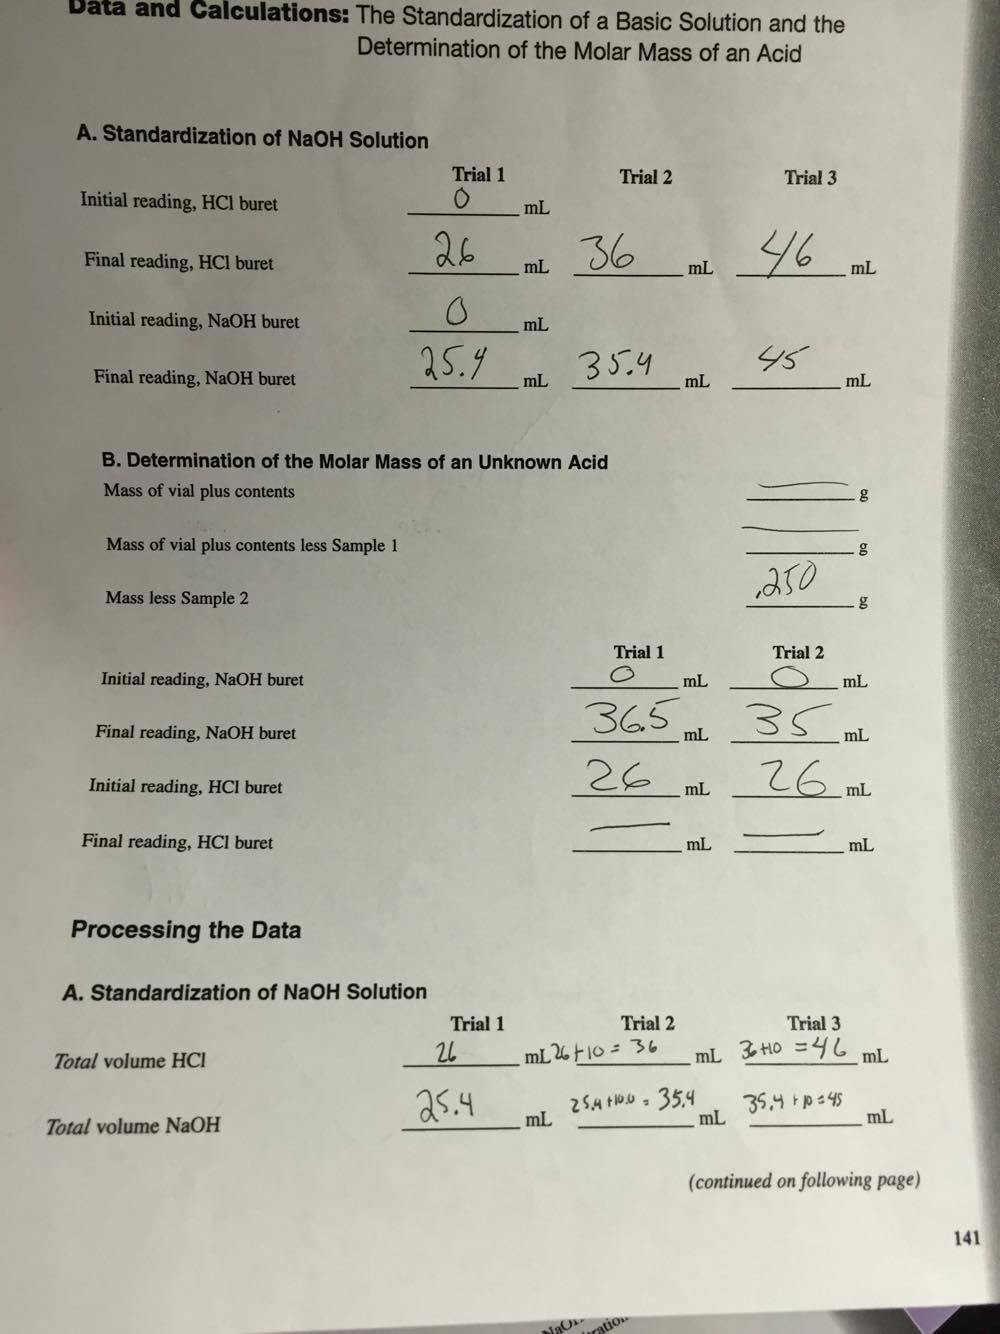 Data and Calculations: The Standardization of a Basic Solution and the
Determination of the Molar Mass of an Acid
A. Standardization of NaOH Solution
Trial 1 Trial 2 Trial 3
Initial reading, HCl buret 0 mL
Final reading, HCl buret 26 mL 36 mL 46 mL
Initial reading, NaOH buret 0 mL
Final reading, NaOH buret 25.4 mL 35.4 mL 45 mL
B. Determination of the Molar Mass of an Unknown Acid
Mass of vial plus contents g
Mass of vial plus contents less Sample 1 g
Mass less Sample 2 .250 g
Trial 1 Trial 2
Initial reading, NaOH buret 0 mL 0 mL
Final reading, NaOH buret 36.5 mL 35 mL
Initial reading, HCl buret 26 mL 26 mL
Final reading, HCl buret mL mL
Processing the Data
A. Standardization of NaOH Solution
Trial 1 Trial 2 Trial 3
Total volume HCl 26 mL 26+10 = 36 mL 36+10 = 46 mL
Total volume NaOH 25.4 mL 25.4+10.0 = 35.4 mL 35.4+10=45 mL
(continued on following page)
141